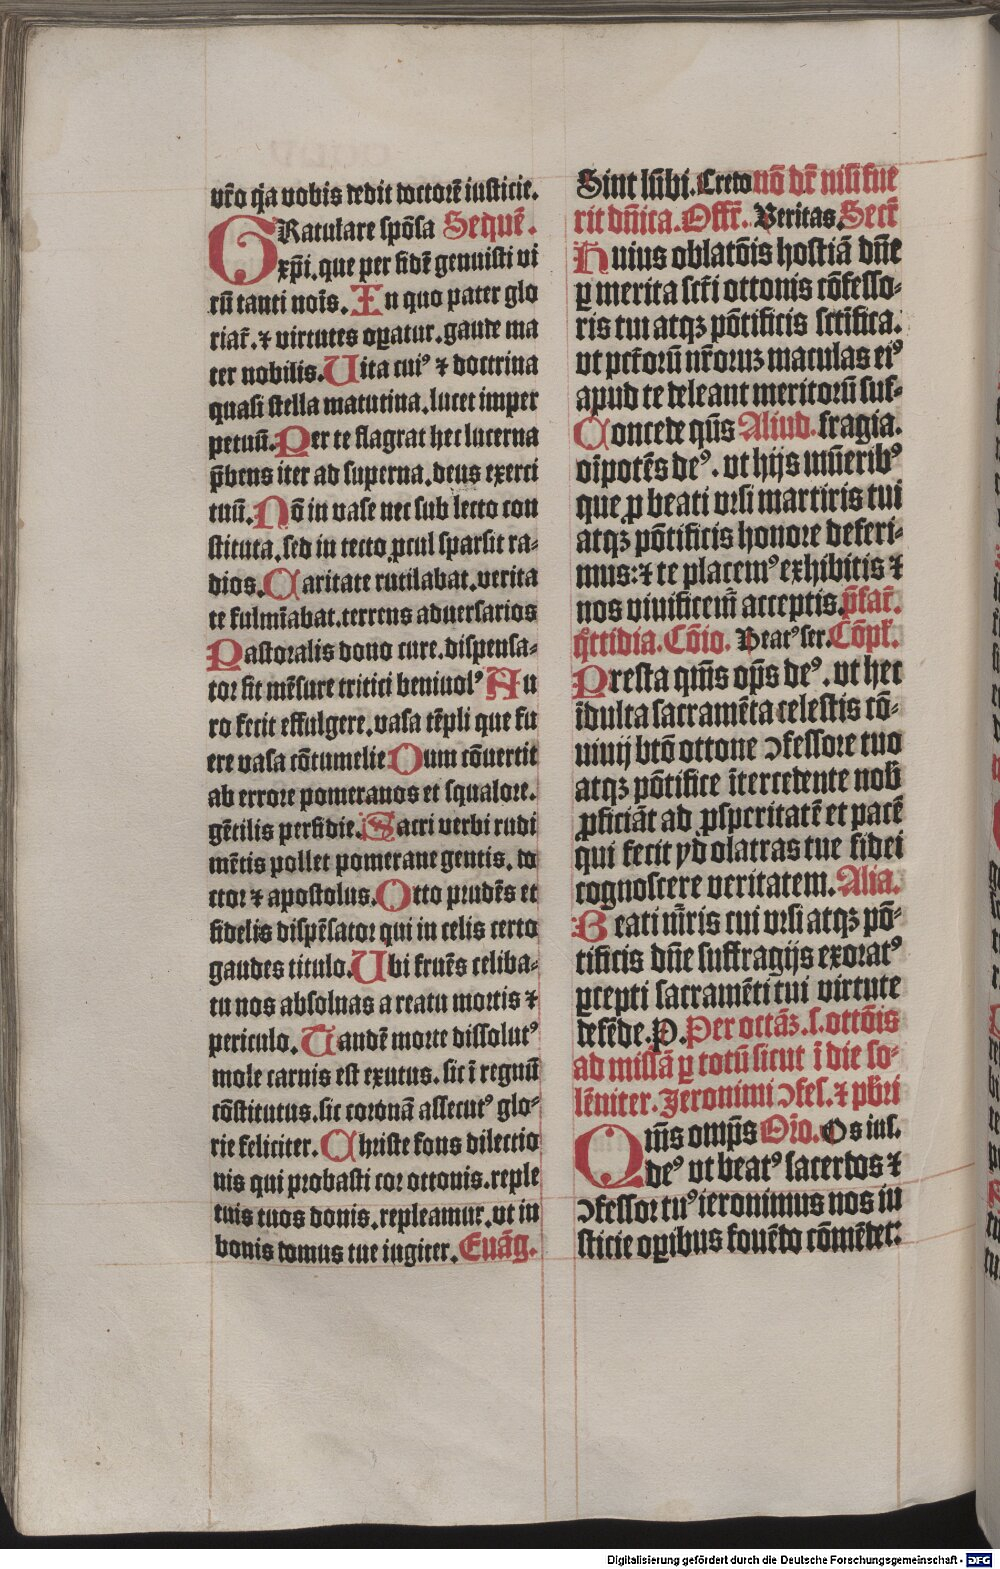 vr̄o q̄a vobis dedit doctorē iusticie.
GRatulare spōsa Sequē.
xp̄i. que per fidē genuisti vi
rū tanti nois̄. In quo pater glo
riat̄. ⁊ virtutes oꝑatur. gaude ma
ter nobilis. Uita cuiꝰ ⁊ doctrina
quasi stella matutina. lucet imper
petuū. Per te flagrat hec lucerna
p̄bens iter ad superna. deus exerci
tuū. Nō in vase nec sub lecto con
stituta. sed in tecto ꝓcul sparsit ra⸗
dios. Caritate rutilabat. verita
te fulmīabat. terrens aduersarios
Pastoralis dono cure. dispensa⸗
tor fit mēsure tritici beniuolꝰ Au
ro fecit effulgere. vasa tēpli que fu
ere vasa cōtumelie Dum cōuertit
ab errore pomeranos et squalore.
gētilis perfidie. Sacri verbi rudi
mētis pollet pomerane gentis. do
ctor ⁊ apostolus. Otto prudēs et
fidelis dispēsator qui in celis certo
gaudes titulo. Ubi fruēs celiba⸗
tu nos absoluas a reatu mortis ⁊
periculo. Tandē morte dissolutꝰ
mole carnis est exutus. sic ī regnū
cōstitutus. sic coronā assecutꝰ glo⸗
rie feliciter. Christe fons dilectio
nis qui probasti cor ottonis. reple
tuis tuos donis. repleamur. vt in
bonis domus tue iugiter. Euāg.
Sint lūbi. Credo nō dr̄ nisi fue
rit dn̄ica. Offr̄. Veritas. Secr̄
Huius oblatōis hostiā dn̄e
ꝑ merita sct̄i ottonis cōfesso⸗
ris tui atqꝫ pōtificis sctīfica.
vt pct̄orū nr̄oruꝫ maculas eiꝰ
apud te deleant meritorū suf⸗
Concede qm̄s Aliud. fragia.
oīpotēs deꝰ. vt hijs mūeribꝰ
que ꝓ beati vrsi martiris tui
atqꝫ pōtificis honore deferi⸗
mus: ⁊ te placemꝰ exhibitis ⁊
nos viuificem̄ acceptis. p̄fat̄.
q̄ttidia. Cōio. Beatꝰ ser. Cōpl̄.
Presta qm̄s op̄s deꝰ. vt hec
īdulta sacramēta celestis cō⸗
uiuij btō ottone ↄfessore tuo
atqꝫ pōtifice ītercedente nob̄
ꝓficiāt ad ꝓsperitatē et pacē
qui fecit ydolatras tue fidei
cognoscere veritatem. Alia.
Beati m̄ris tui vrsi atqꝫ pō⸗
tificis dn̄e suffragijs exoratꝰ
ꝑcepti sacramēti tui virtute
defēde. P. Per octāꝫ. s. ottōis
ad missā ꝑ totū sicut ī die so⸗
lēniter. Jeronimi ↄfes. ⁊ pb̄ri
Qm̄s omp̄s Oīo. Os ius.
deꝰ vt beatꝰ sacerdos ⁊
ↄfessor tuꝰ ieronimus nos iu
sticie oꝑibus fouēdo cōmēdet:
Digitalisierung gefördert durch die Deutsche Forschungsgemeinschaft - DFG